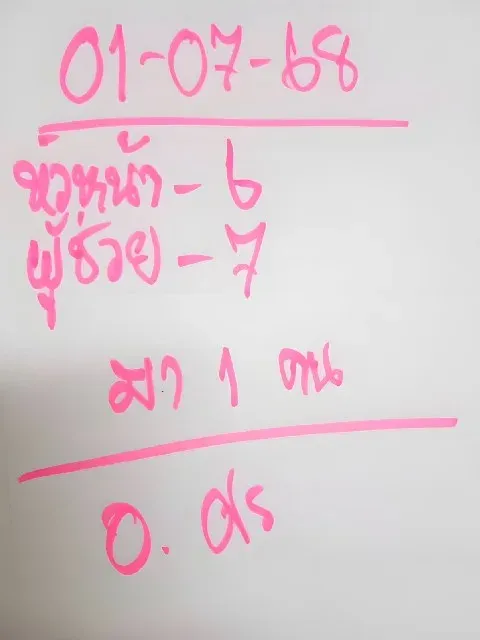 01-07-68
หัวหน้า - 6
ผู้ช่วย - 7
มา 1 คน
0. ศร